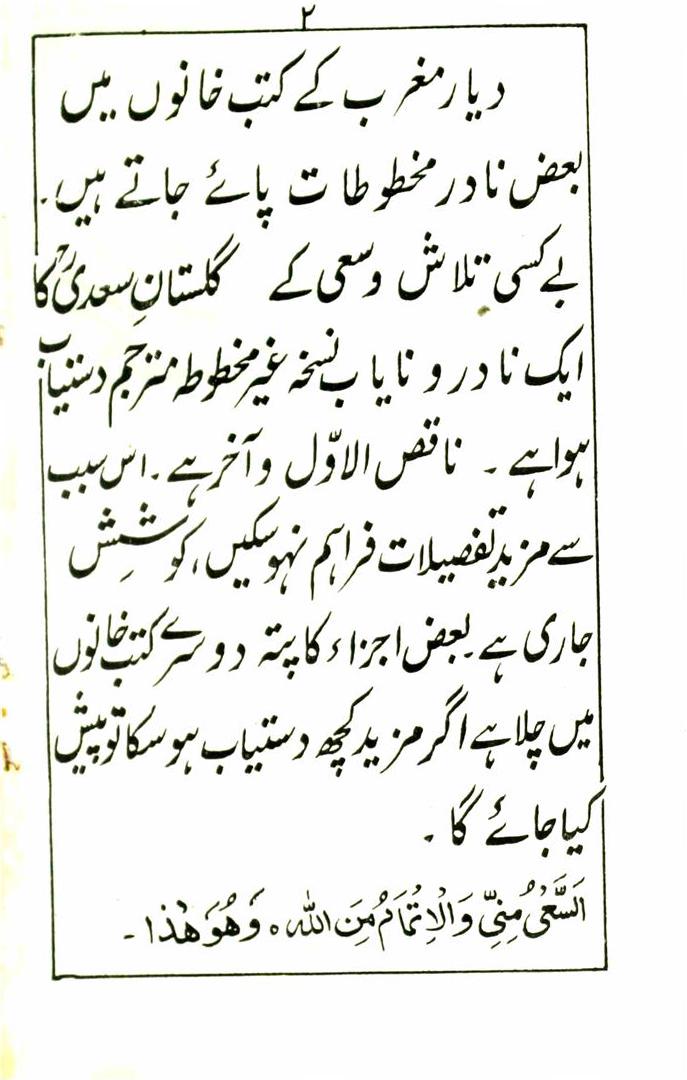 ۲
دیار مغرب کے کتب خانوں میں
بعض نادر مخطوطات پائے جاتے ہیں۔
بے کسی تلاش و سعی کے گلستانِ سعدیؒ کا
ایک نادر و نایاب نسخہ غیر مخطوطہ مترجم دستیاب
ہوا ہے ۔ ناقص الاوّل و آخر ہے ۔ اس سبب
سے مزید تفصیلات فراہم نہو سکیں، کوشِش
جاری ہے ۔ بعض اجزاء کا پتہ دوسرے کتب خانوں
میں چلا ہے اگر مزید کچھ دستیاب ہو سکا تو پیش
کیا جائے گا ۔
اَلسَّعْیُ مِنِّیْ وَالْاِتْمَامُ مِنَ اللہ ہ وَھُوَ ھٰذا ۔